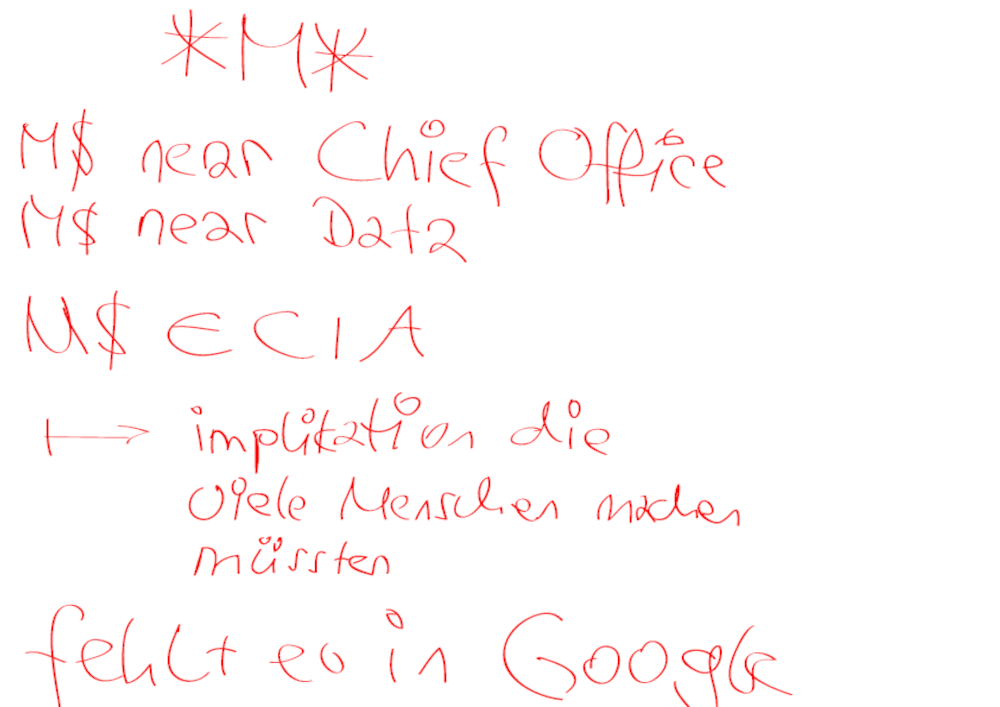 *M*
M$ near Chief Office
M$ near Data
M$ ∈ CIA
↦ implikation die
viele Menschen machen
müssten
fehlt es in Google